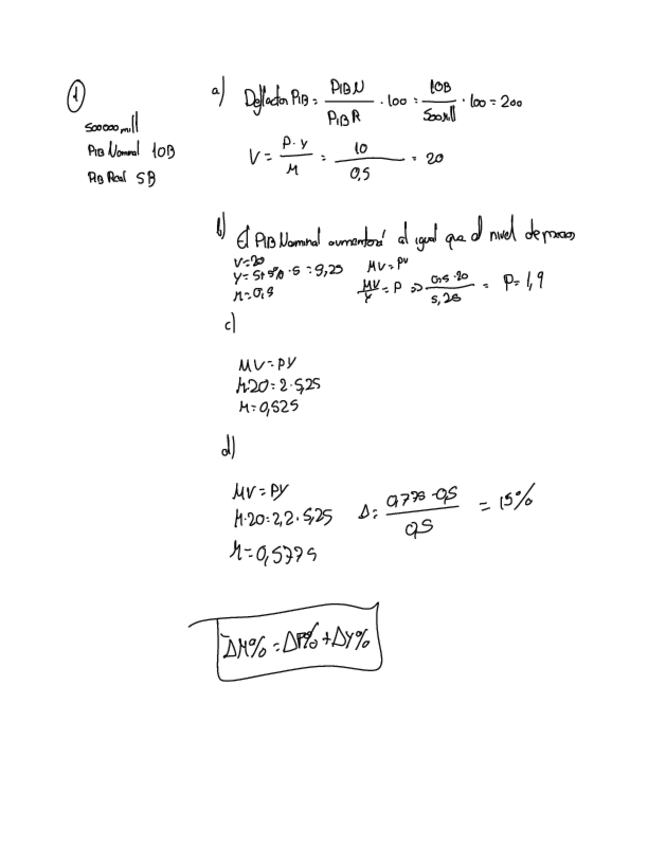 1
500000 mill
PIB Nominal 10B
PIB Real 5B
a) Deflactor PIB = PIBN / PIBR · 100 = 10B / 500mill · 100 = 200
V = P·Y / M = 10 / 0,5 = 20
b) El PIB Nominal aumentará al igual que el nivel de precios
V=20
Y= 5+5% · 5 = 5,25
M=0,5
MV=PY
MV / Y = P => 0,5·20 / 5,25 = P= 1,9
c)
MV=PY
M·20= 2·5,25
M=0,525
d)
MV=PY
M·20=2,2·5,25
M=0,5775
Δ= 0,775-0,5 / 0,5 = 15%
ΔM%=ΔP%+ΔY%